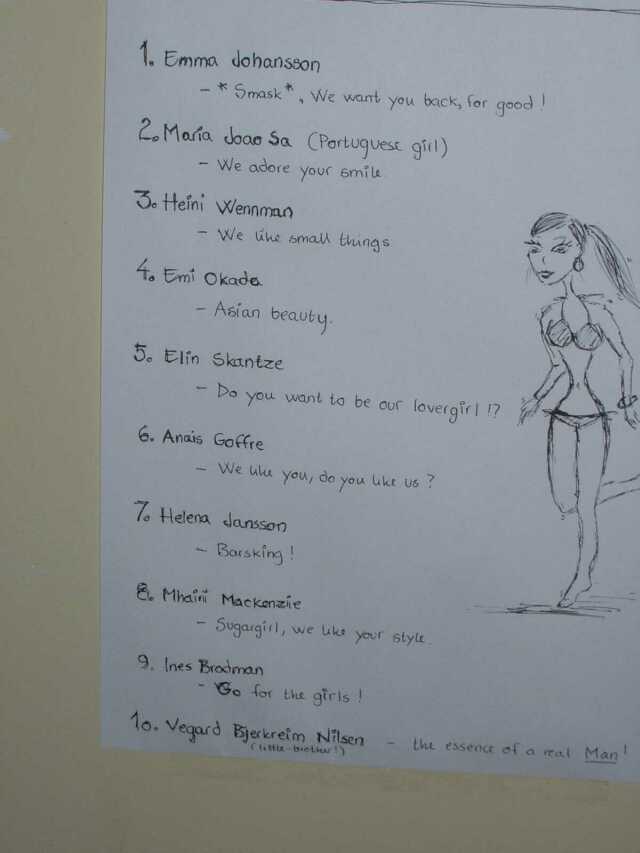 1. Emma Johansson
- *Smask*, We want you back, for good!
2. Maria Joao Sa (Portuguese girl)
- We adore your smile.
3. Heini Wennman
- We like small things
4. Emi Okada
- Asian beauty.
5. Elin Skantze
- Do you want to be our lovergirl!?
6. Anais Goffre
- We like you, do you like us?
7. Helena Jansson
- Barsking!
8. Mhairi Mackenzie
- Sugargirl, we like your style.
9. Ines Brodman
- Go for the girls!
10. Vegard Bjerkreim Nilsen - the essence of a real Man!
(little-brother!)